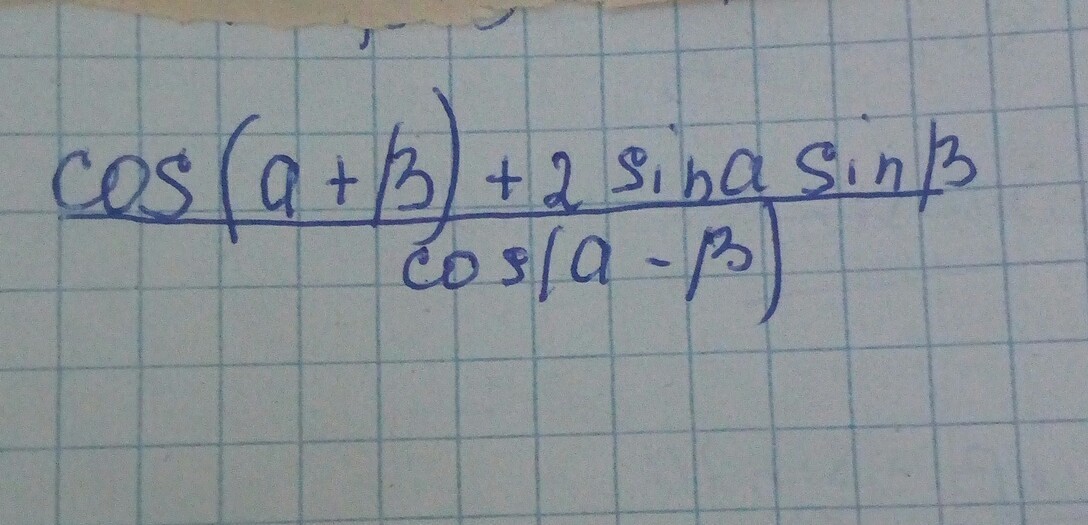 cos(a+β)+2 sina sinβ
cos(a-β)